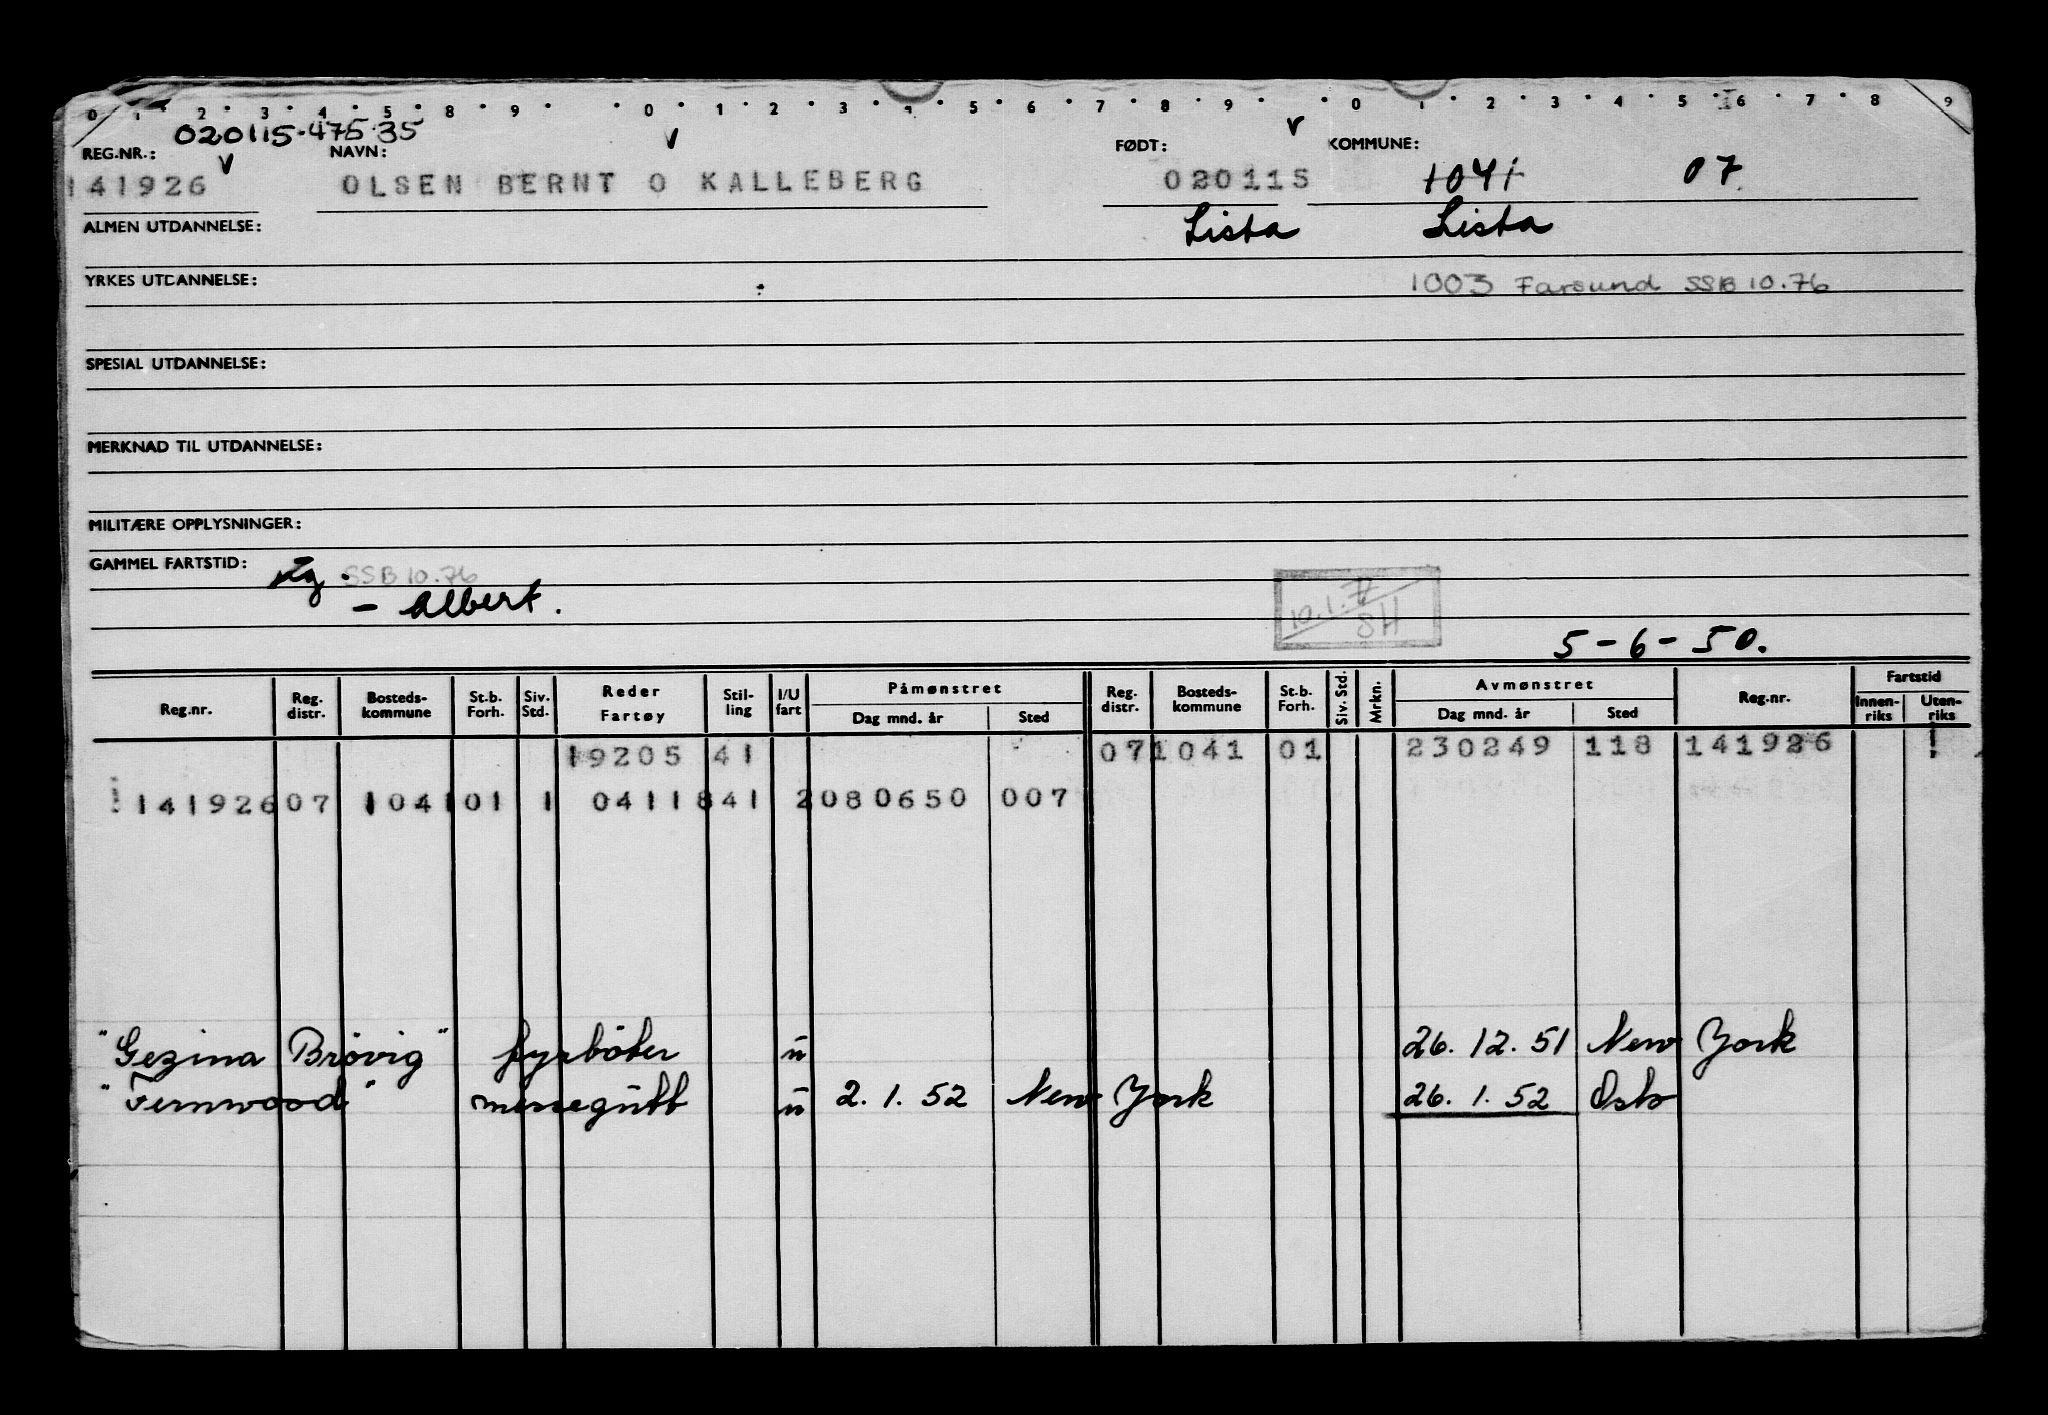 0 1 2 3 4 5 8 9 0 1 2 3 4 5 6 7 8 9 0 1 2 3 4 5 6 7 8 9
020115.475 35
REG.NR.: NAVN: FØDT: KOMMUNE:
141926 OLSEN BERNT O KALLEBERG 020115 1041 07
ALMEN UTDANNELSE: Lista Lista
YRKES UTDANNELSE: 1003 Farsund SSB 10.76
SPESIAL UTDANNELSE:
MERKNAD TIL UTDANNELSE:
MILITÆRE OPPLYSNINGER:
GAMMEL FARTSTID: SSB 10.76
- Albert. 10.1.77 SH
5-6-50.
Reg.nr. Reg. distr. Bosteds-kommune St.b. Forh. Siv. Std. Reder Fartøy Stil-ling I/U fart Påmønstret Dag mnd. år Sted Reg. distr. Bosteds-kommune St.b. Forh. Siv. Std. Mrkn. Avmønstret Dag mnd. år Sted Reg.nr. Fartstid Innen-riks Uten-riks
19205 41 07 1041 01 230249 118 141926
141926 07 1041 01 1 04118 41 2 080650 007
"Gezina Brøvig" fyrbøter u 26.12.51 New York
"Fernwood" messegutt u 2.1.52 New York 26.1.52 Oslo